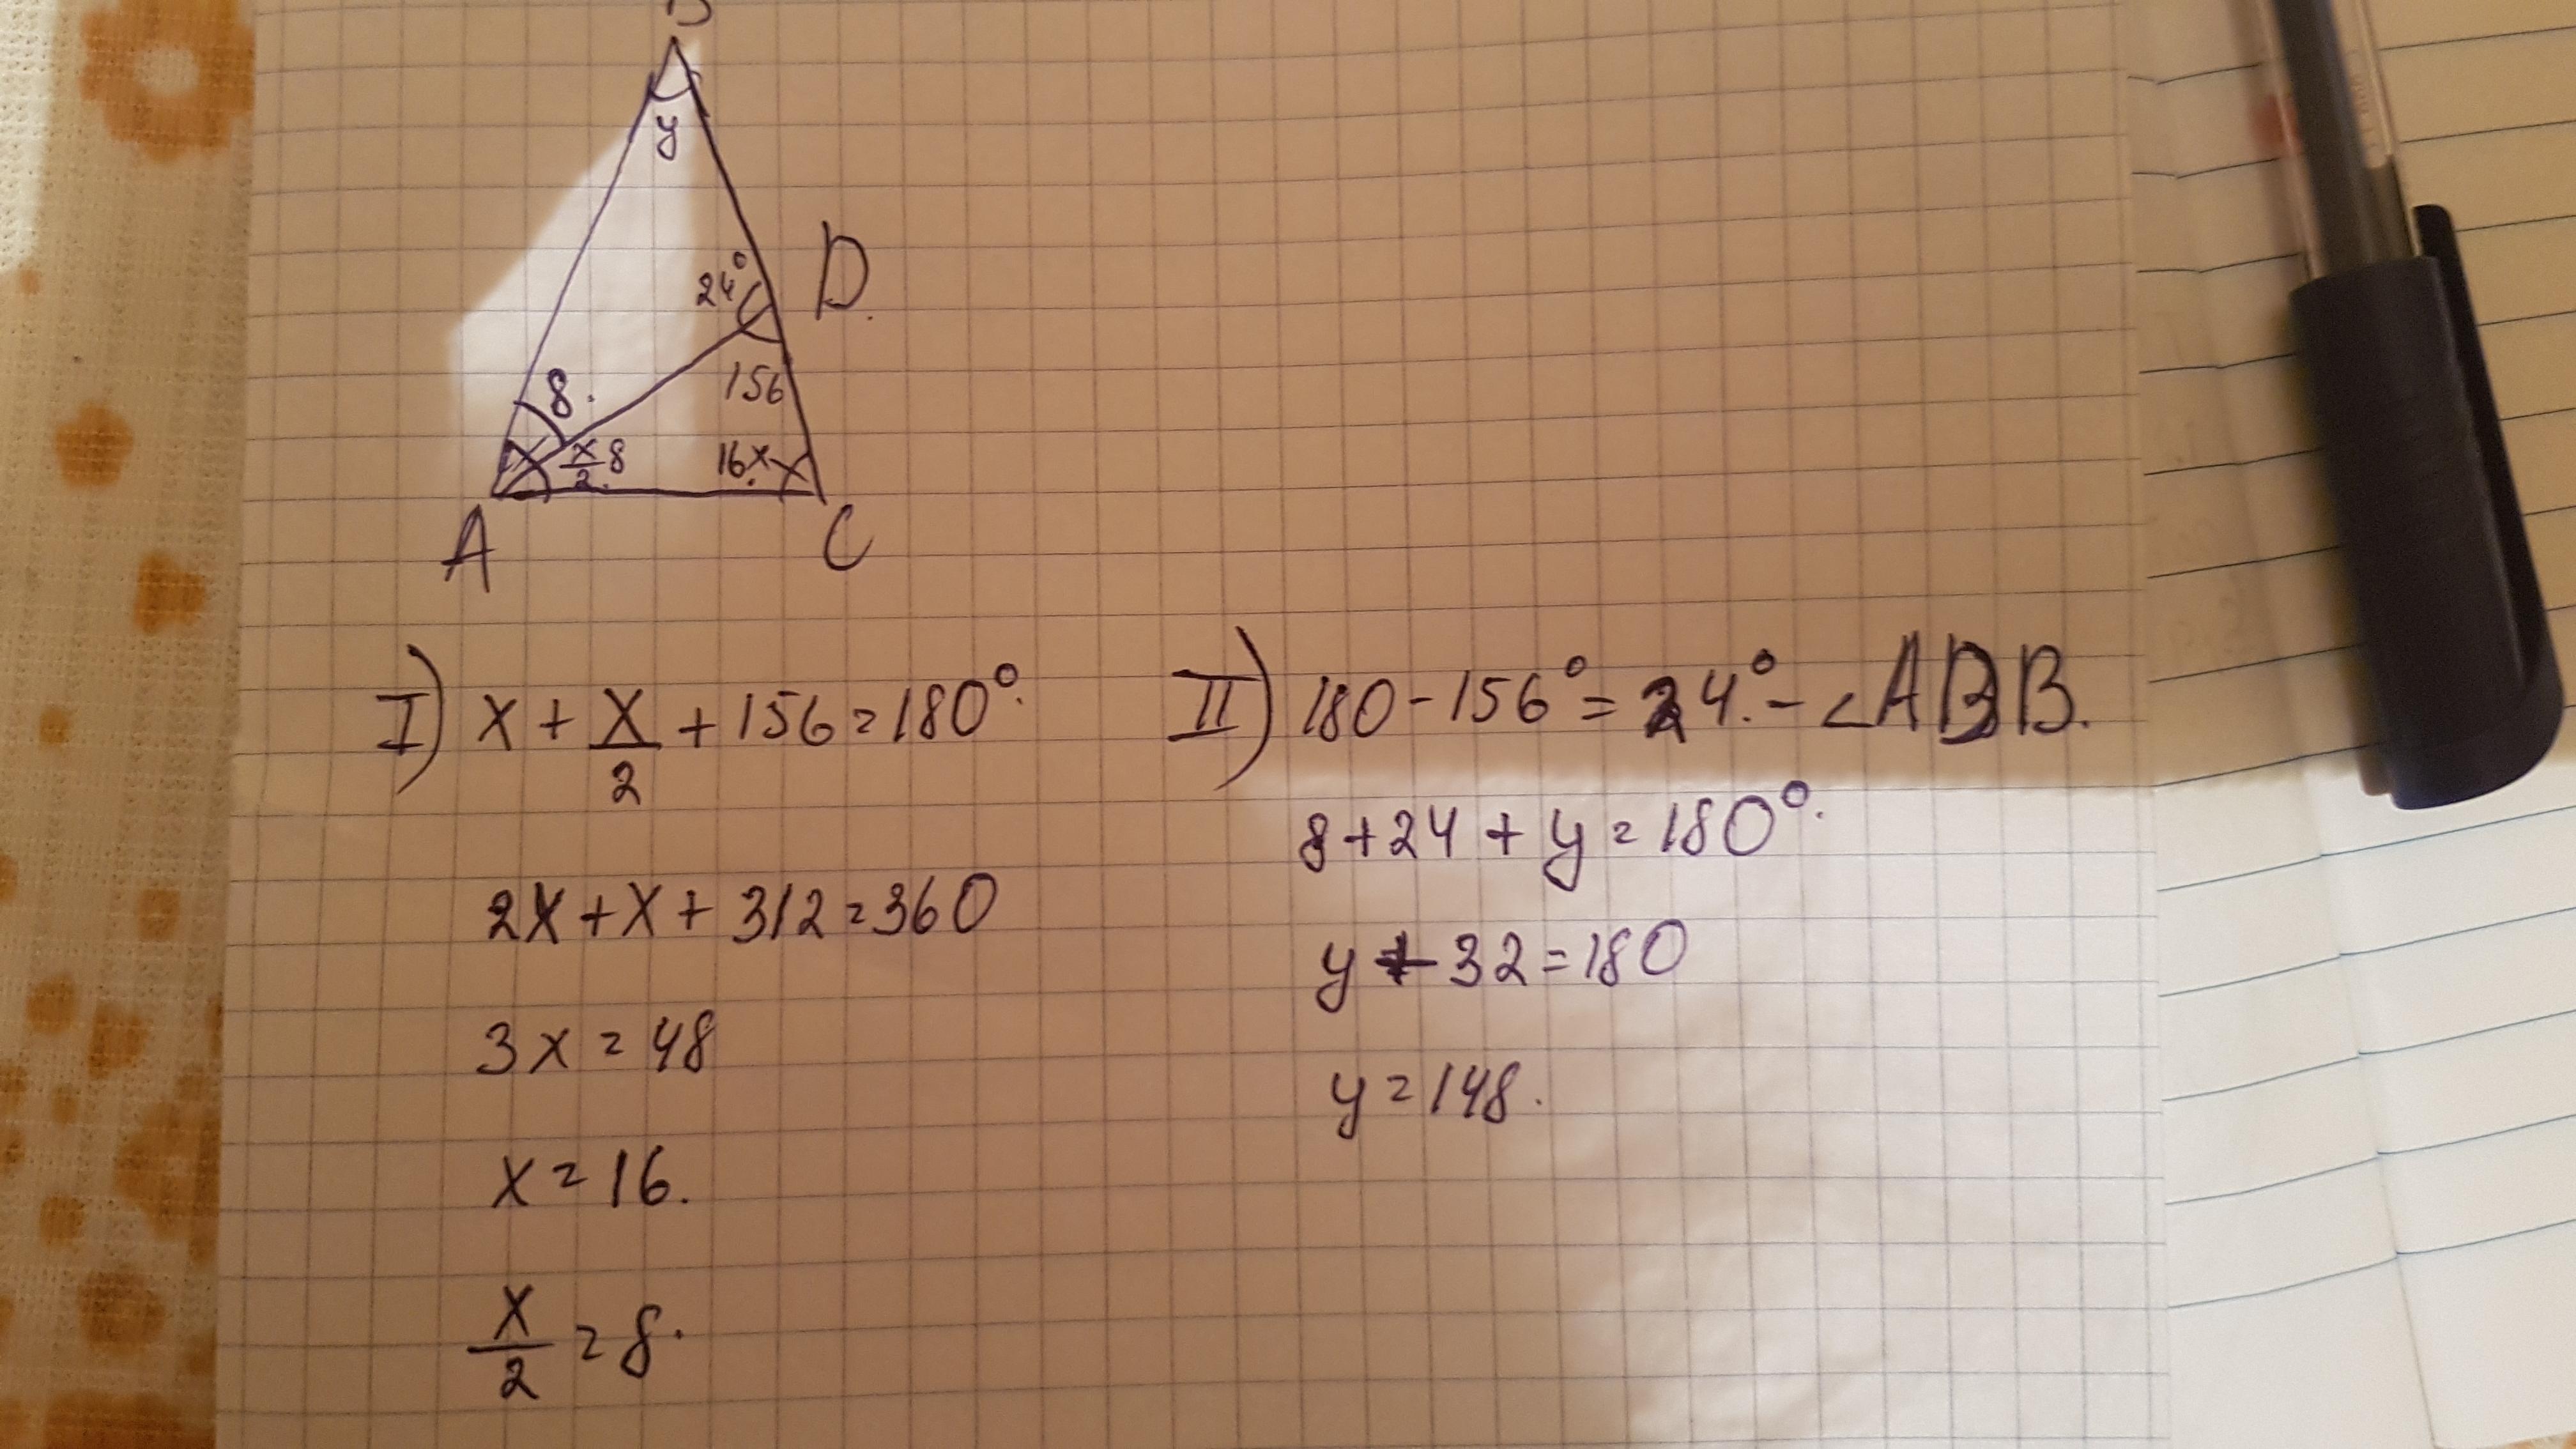 B
y
24°
D.
8.
156
x
x/2 8
16. x
A
C
I) x + x/2 + 156 = 180°.
2x + x + 312 = 360
3x = 48
x = 16.
x/2 = 8.
II) 180 - 156° = 24.° - ∠ADB.
8 + 24 + y = 180°.
y + 32 = 180
y = 148.